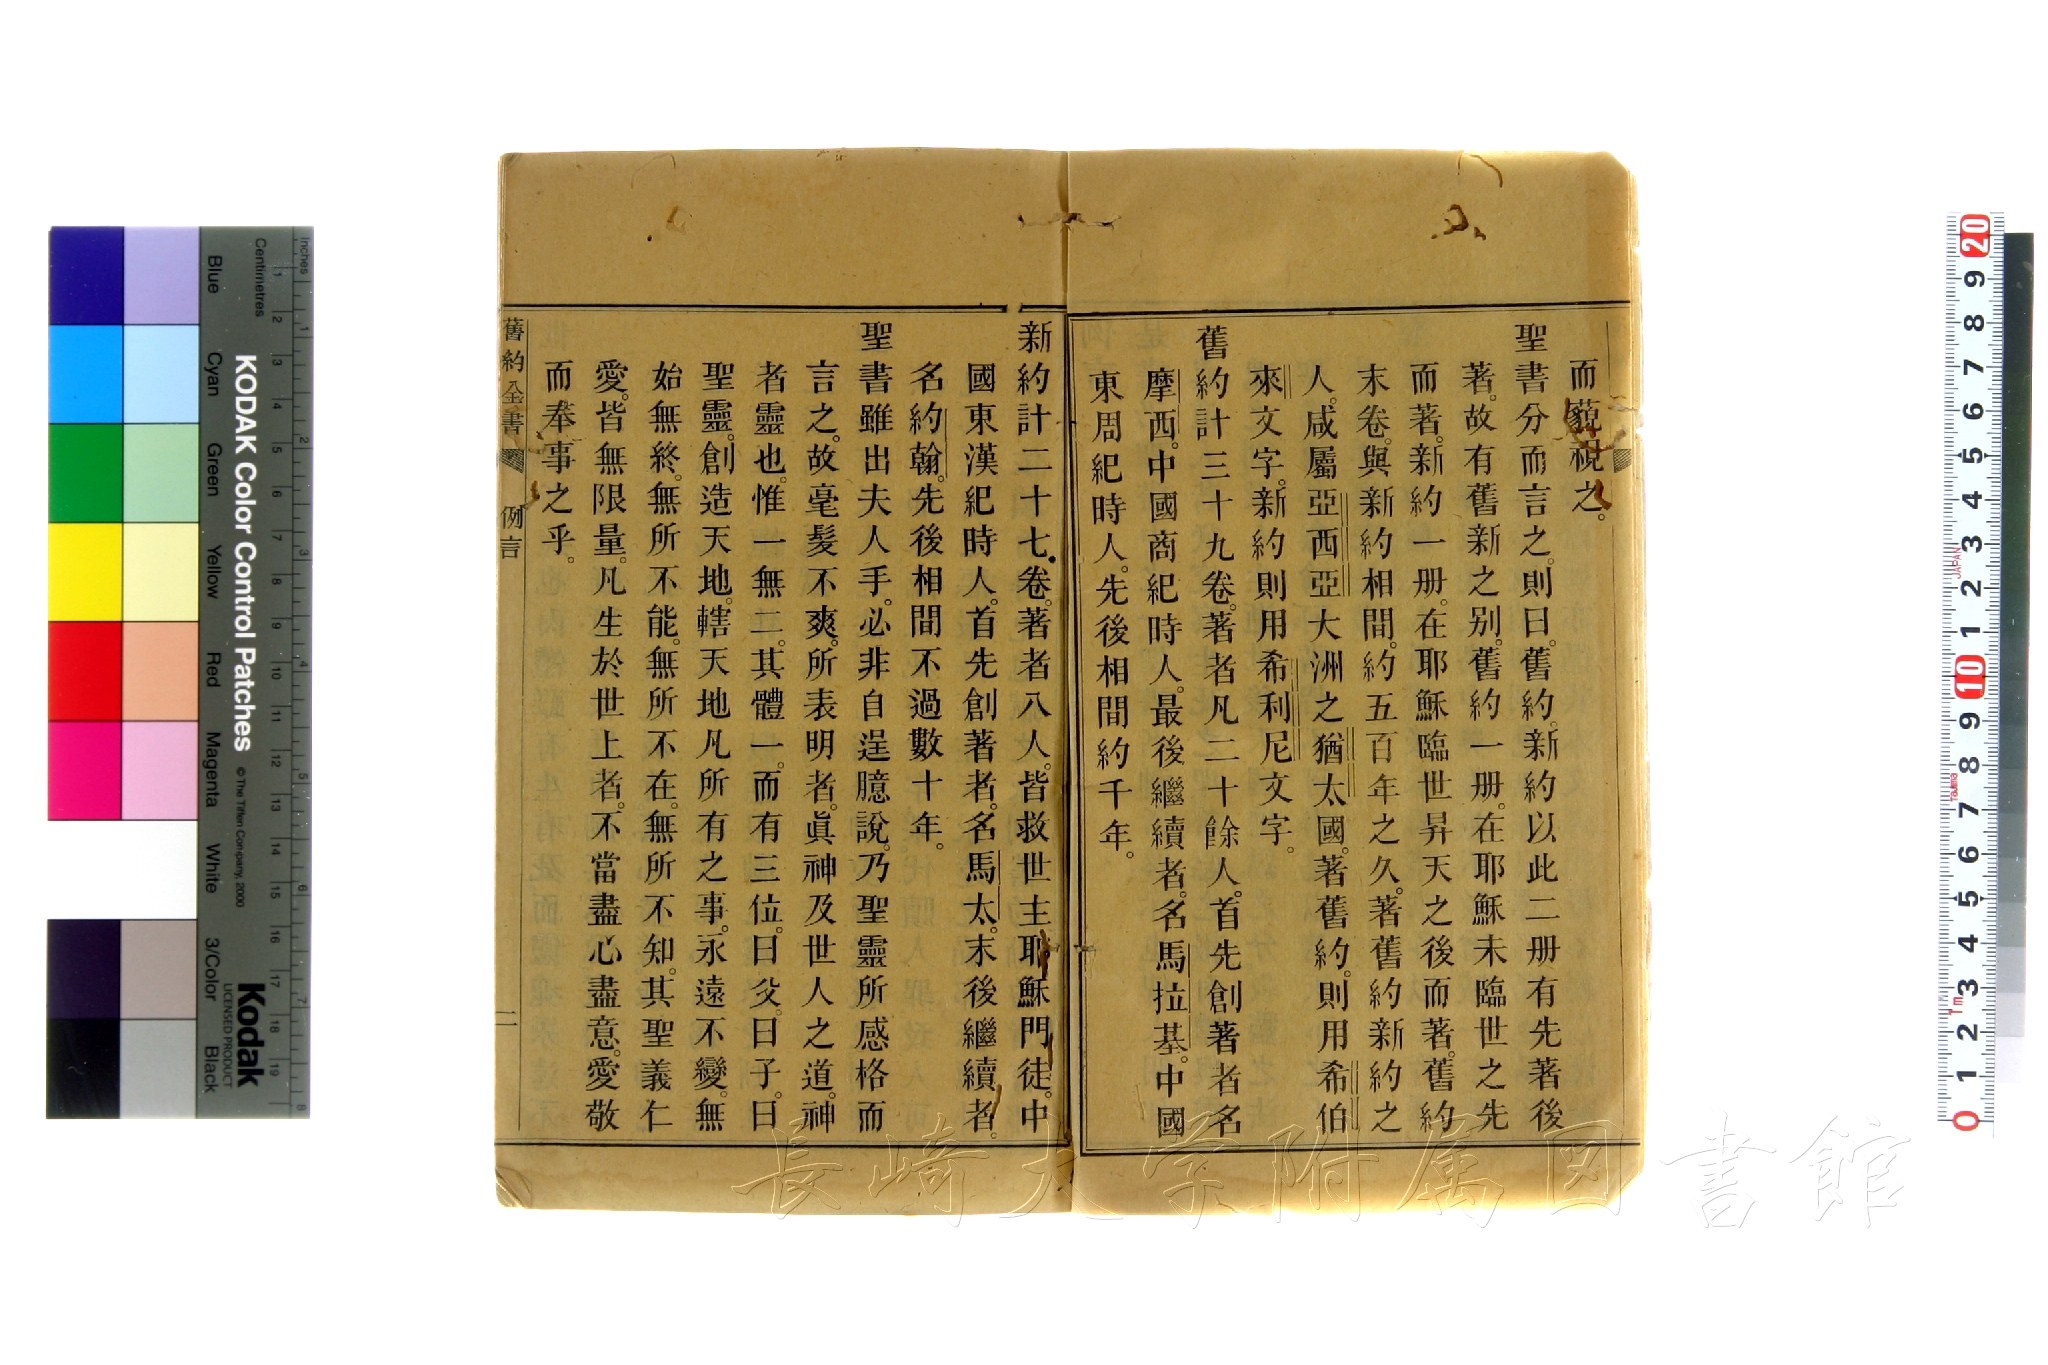 而藐視之。
聖書分而言之。則曰。舊約。新約以此二册有先著後
著。故有舊新之别。舊約一册。在耶穌未臨世之先
而著。新約一册。在耶穌臨世昇天之後而著。舊約
末卷。與新約相間。約五百年之久。著舊約新約之
人。咸屬亞西亞大洲之猶太國。著舊約。則用希伯
來文字。新約則用希利尼文字。
舊約計三十九卷。著者凡二十餘人。首先創著者名
摩西。中國商紀時人。最後繼續者。名馬拉基。中國
東周紀時人。先後相間約千年。
新約計二十七卷。著者八人。皆救世主耶穌門徒。中
國東漢紀時人。首先創著者。名馬太。末後繼續者。
名約翰。先後相間不過數十年。
聖書雖出夫人手。必非自逞臆說。乃聖靈所感格而
言之。故毫髮不爽。所表明者。眞神及世人之道。神
者靈也。惟一無二。其體一。而有三位。曰父。曰子。曰
聖靈。創造天地。轄天地凡所有之事。永遠不變。無
始無終。無所不能。無所不在。無所不知。其聖義仁
愛。皆無限量。凡生於世上者。不當盡心盡意。愛敬
而奉事之乎。
舊約全書 例言 二
KODAK Color Control Patches
© The Tiffen Company, 2000
Kodak
LICENSED PRODUCT
Inches
Centimetres
Blue
Cyan
Green
Yellow
Red
Magenta
White
3/Color
Black
長崎大学附属図書館
JAPAN